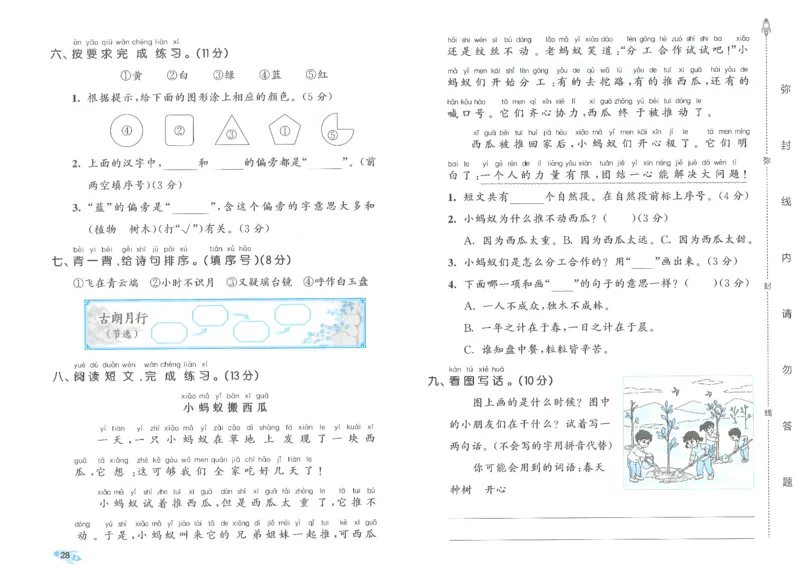 àn yāo qiú wán chéng liàn xí
六、按要求完成练习。(11分)
①黄 ②白 ③绿 ④蓝 ⑤红
1. 根据提示,给下面的图形涂上相应的颜色。(5分)
④ ② ③ ① ⑤
2. 上面的汉字中,____和____的偏旁都是“____”。(前
两空填序号)(3分)
3. “蓝”的偏旁是“____”,含这个偏旁的字意思大多和
(植物 树木)(打“√”)有关。(3分)
bèi yi bèi gěi shī jù pái xù tián xù hào
七、背一背,给诗句排序。(填序号)(8分)
①飞在青云端 ②小时不识月 ③又疑瑶台镜 ④呼作白玉盘
古朗月行
(节选)
yuè dú duǎn wén wán chéng liàn xí
八、阅读短文,完成练习。(13分)
xiǎo mǎ yǐ bān xī guā
小蚂蚁搬西瓜
yì tiān yì zhī xiǎo mǎ yǐ zài cǎo dì shàng fā xiàn le yí kuài xī
一天,一只小蚂蚁在草地上发现了一块西
guā tā xiǎng zhè kě gòu wǒ men quán jiā chī hǎo jǐ tiān le
瓜,它想:这可够我们全家吃好几天了!
xiǎo mǎ yǐ shì zhe tuī xī guā dàn shì xī guā tài zhòng le tā tuī bú
小蚂蚁试着推西瓜,但是西瓜太重了,它推不
dòng yú shì xiǎo mǎ yǐ jiào lái tā de xiōng dì jiě mèi yì qǐ tuī kě xī guā
动。于是,小蚂蚁叫来它的兄弟姐妹一起推,可西瓜
28
hái shi wén sī bú dòng lǎo mǎ yǐ xiào dào fēn gōng hé zuò shì shi ba xiǎo
还是纹丝不动。老蚂蚁笑道:“分工合作试试吧!”小
mǎ yǐ men kāi shǐ fēn gōng yǒu de qù wā lù yǒu de tuī xī guā hái yǒu de
蚂蚁们开始分工:有的去挖路,有的推西瓜,还有的
hǎn kǒu hào tā men qí xīn xié lì xī guā zhōng yú bèi tuī dòng le
喊口号。它们齐心协力,西瓜终于被推动了。
xī guā bèi tuī huí jiā hòu xiǎo mǎ yǐ men kāi xīn jí le tā men míng
西瓜被推回家后,小蚂蚁们开心极了。它们明
bai le yí gè rén de lì liàng yǒu xiàn tuán jié yì xīn néng jiě jué dà wèn tí
白了:一个人的力量有限,团结一心能解决大问题!
1. 短文共有____个自然段。在自然段前标上序号。(4分)
2. 小蚂蚁为什么推不动西瓜?( )(3分)
A. 因为西瓜太重。 B. 因为西瓜太远。 C. 因为西瓜太甜。
3. 小蚂蚁们是怎么分工合作的?用“____”画出来。(3分)
4. 下面哪一项和画“____”的句子的意思一样?( )(3分)
A. 一人不成众,独木不成林。
B. 一年之计在于春,一日之计在于晨。
C. 谁知盘中餐,粒粒皆辛苦。
kàn tú xiě huà
九、看图写话。(10分)
图上画的是什么时候?图中
的小朋友们在干什么?试着写一
两句话。(不会写的字用拼音代替)
你可能会用到的词语:春天
种树 开心
弥
封
线
内
请
勿
答
题
弥
封
线